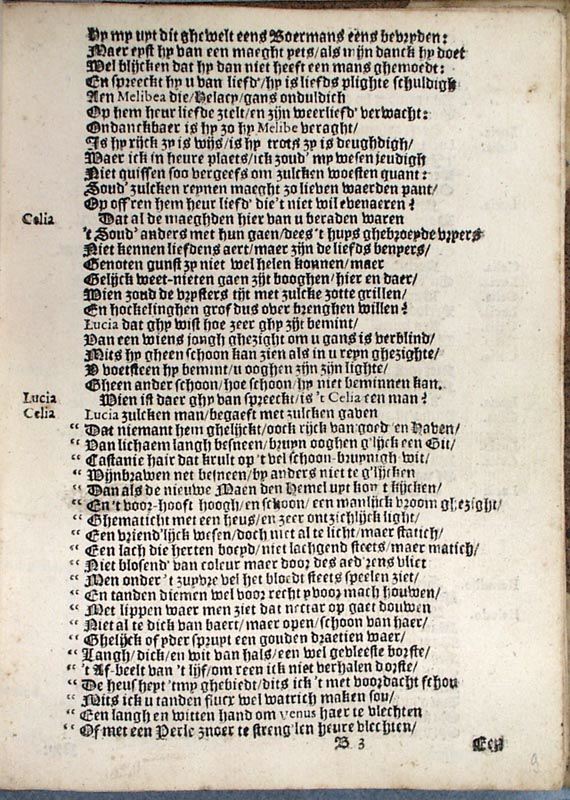 Hy my uyt dit ghewelt eens Boermans eens bevryden:
Maer eyst hy van een maeght yets/als mijn danck hy doet
Wel blijcken dat hy dan niet heeft een mans ghemoedt:
En spreeckt hy u van liefd'/hy is liefds plighte schuldigh
Aen Melibea die/Helacy/gans onduldich
Op hem heur liefde stelt/en zijn weerliefd' verwacht:
Ondanckbaer is hy zo hy Melibe veraght/
Is hy rijck zy is wijs/is hy trots zy is deughdigh/
Maer ick in heure plaets/ick zoud' my wesen jeudigh
Niet quissen soo vergeefs om zulcken woesten quant:
Soud' zulcken reynen maeght zo lieven waerden pant/
Op off'ren hem heur liefd' die't niet wil evenaeren?
Celia Dat al de maeghden hier van u beraden waren
't Soud' anders met hun gaen/dees 't huys ghebroeyde vryers
Niet kennen liefdens aert/maer zijn de liefds benyers/
Genoten gunst zy niet wel helen konnen/maer
Gelijck weet-nieten gaen zijt booghen/hier en daer/
Wien zond de vrysters tijt met zulcke zotte grillen/
En hockelinghen grof dus over brenghen willen?
Lucia dat ghy wist hoe zeer ghy zijt bemint/
Van een wiens jongh ghezight om u gans is verblind/
Mits hy gheen schoon kan zien als in u reyn ghezighte/
V voetsteen hy bemint/u ooghen zijn zijn lighte/
Gheen ander schoon/hoe schoon/hy niet beminnen kan.
Lucia Wien ist daer ghy van spreeckt/is 't Celia een man?
Celia Lucia zulcken man/begaeft met zulcken gaven
“ Dat niemant hem ghelijckt/oock rijck van goed' en Haven/
“ Van lichaem langh besneen/bruyn ooghen g'lijck een Git/
“ Castanie hair dat krult op 't vel schoon-bruynigh wit/
“ Wijnbrawen net besneen/by anders niet te g'lijcken
“ Dan als de nieuwe Maen den Hemel uyt kom't kijcken/
“ En 't voor-hooft hoogh/en schoon/een manlijck vroom ghezight/
“ Ghematicht met een heus/en zeer ontzichlijck light/
“ Een vriend'lijck wesen/doch niet al te licht/maer statich/
“ Een lach die herten boeyd/niet lachgend steets/maer matich/
“ Niet blosend' van coleur maer door des aed'rens vliet
“ Men onder 't zuyvre vel het bloedt steets speelen ziet/
“ En tanden diemen wel voor recht yvoor mach houwen/
“ Met lippen waer men ziet dat nectar op gaet douwen
“ Niet al te dick van baert/maer open/schoon van haer/
“ Ghelijck of yder spruyt een gouden draetien waer/
“ Langh/dick/en wit van hals/een wel gevleeste borste/
“ 't Af-beelt van 't lijf/om reen ick niet verhalen dorste/
“ De heusheyt 'tmy ghebiedt/dits ick 't met voordacht schou
“ Mits ick u tanden wel watrich maken sou/
“ Een langh en witten hand om Venus haer te vlechten
“ Of met een Perle znoer te streng'len heure vlechten/
B 3 Een
9